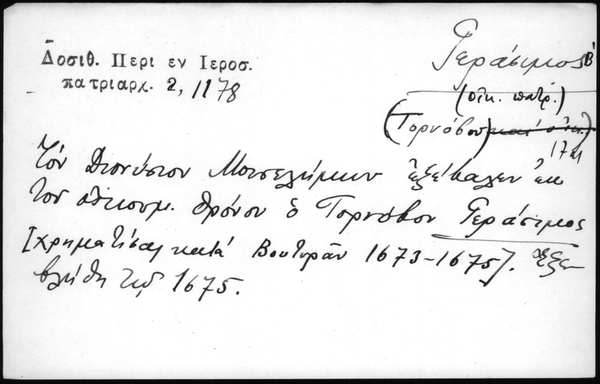 Δοσιθ. Περι εν Ιεροσ.
πατριαρχ. 2, 1178
Γεράσιμος Β
(οἰκ. πατρ.)
(Τορνόβου)
Τὸν Διονύσιον Μουσελίμην ἐξέβαλεν ἐκ
του οἰκουμ. θρόνου ὁ Τορνόβου Γεράσιμος
[χρηματίσας κατά Βουτυρᾶν 1673-1675]. Ἐξε-
βλήθη τῷ 1675.